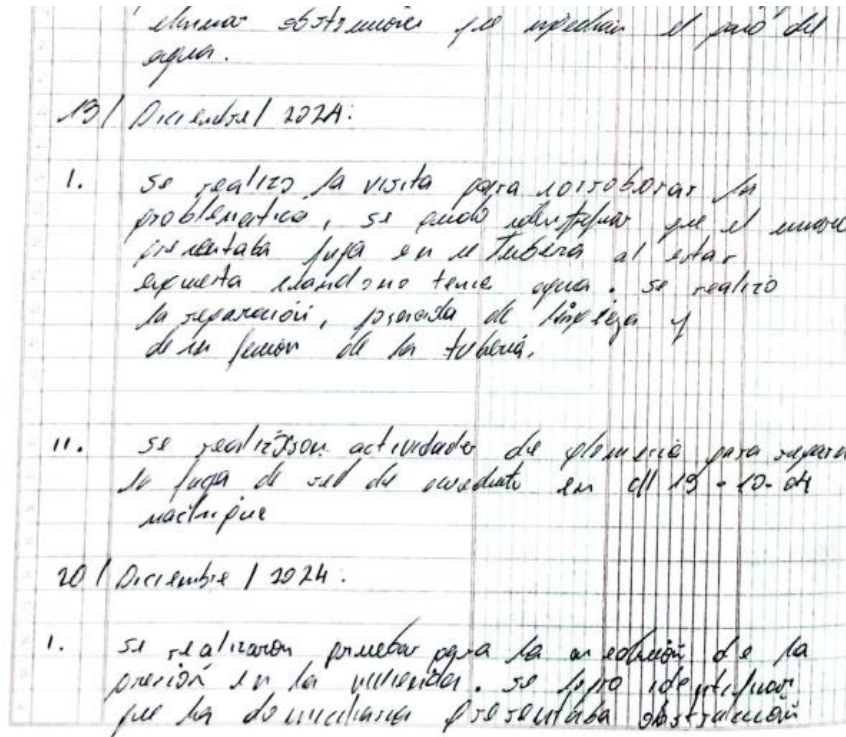 eliminar obstrucciones que impedian el paso del
agua.
19/ Diciembre/ 2024:
1. se realizo la visita para corroborar la
problematica, se pudo identificar que el
presentaba fuga en tuberia al estar
expuesta cuando no tenia agua. se realizo
la reparación, de limpieza y
de la tuberia.
11. se realizaron actividades de plomeria para reparar
la fuga de red de acueducto en cll 19 - 10-04

20/ Diciembre / 2024:
1. se realizaron pruebas para la medición de la
presión en la vivienda. se logro identificar
que la domiciliaria presentaba obstrucción